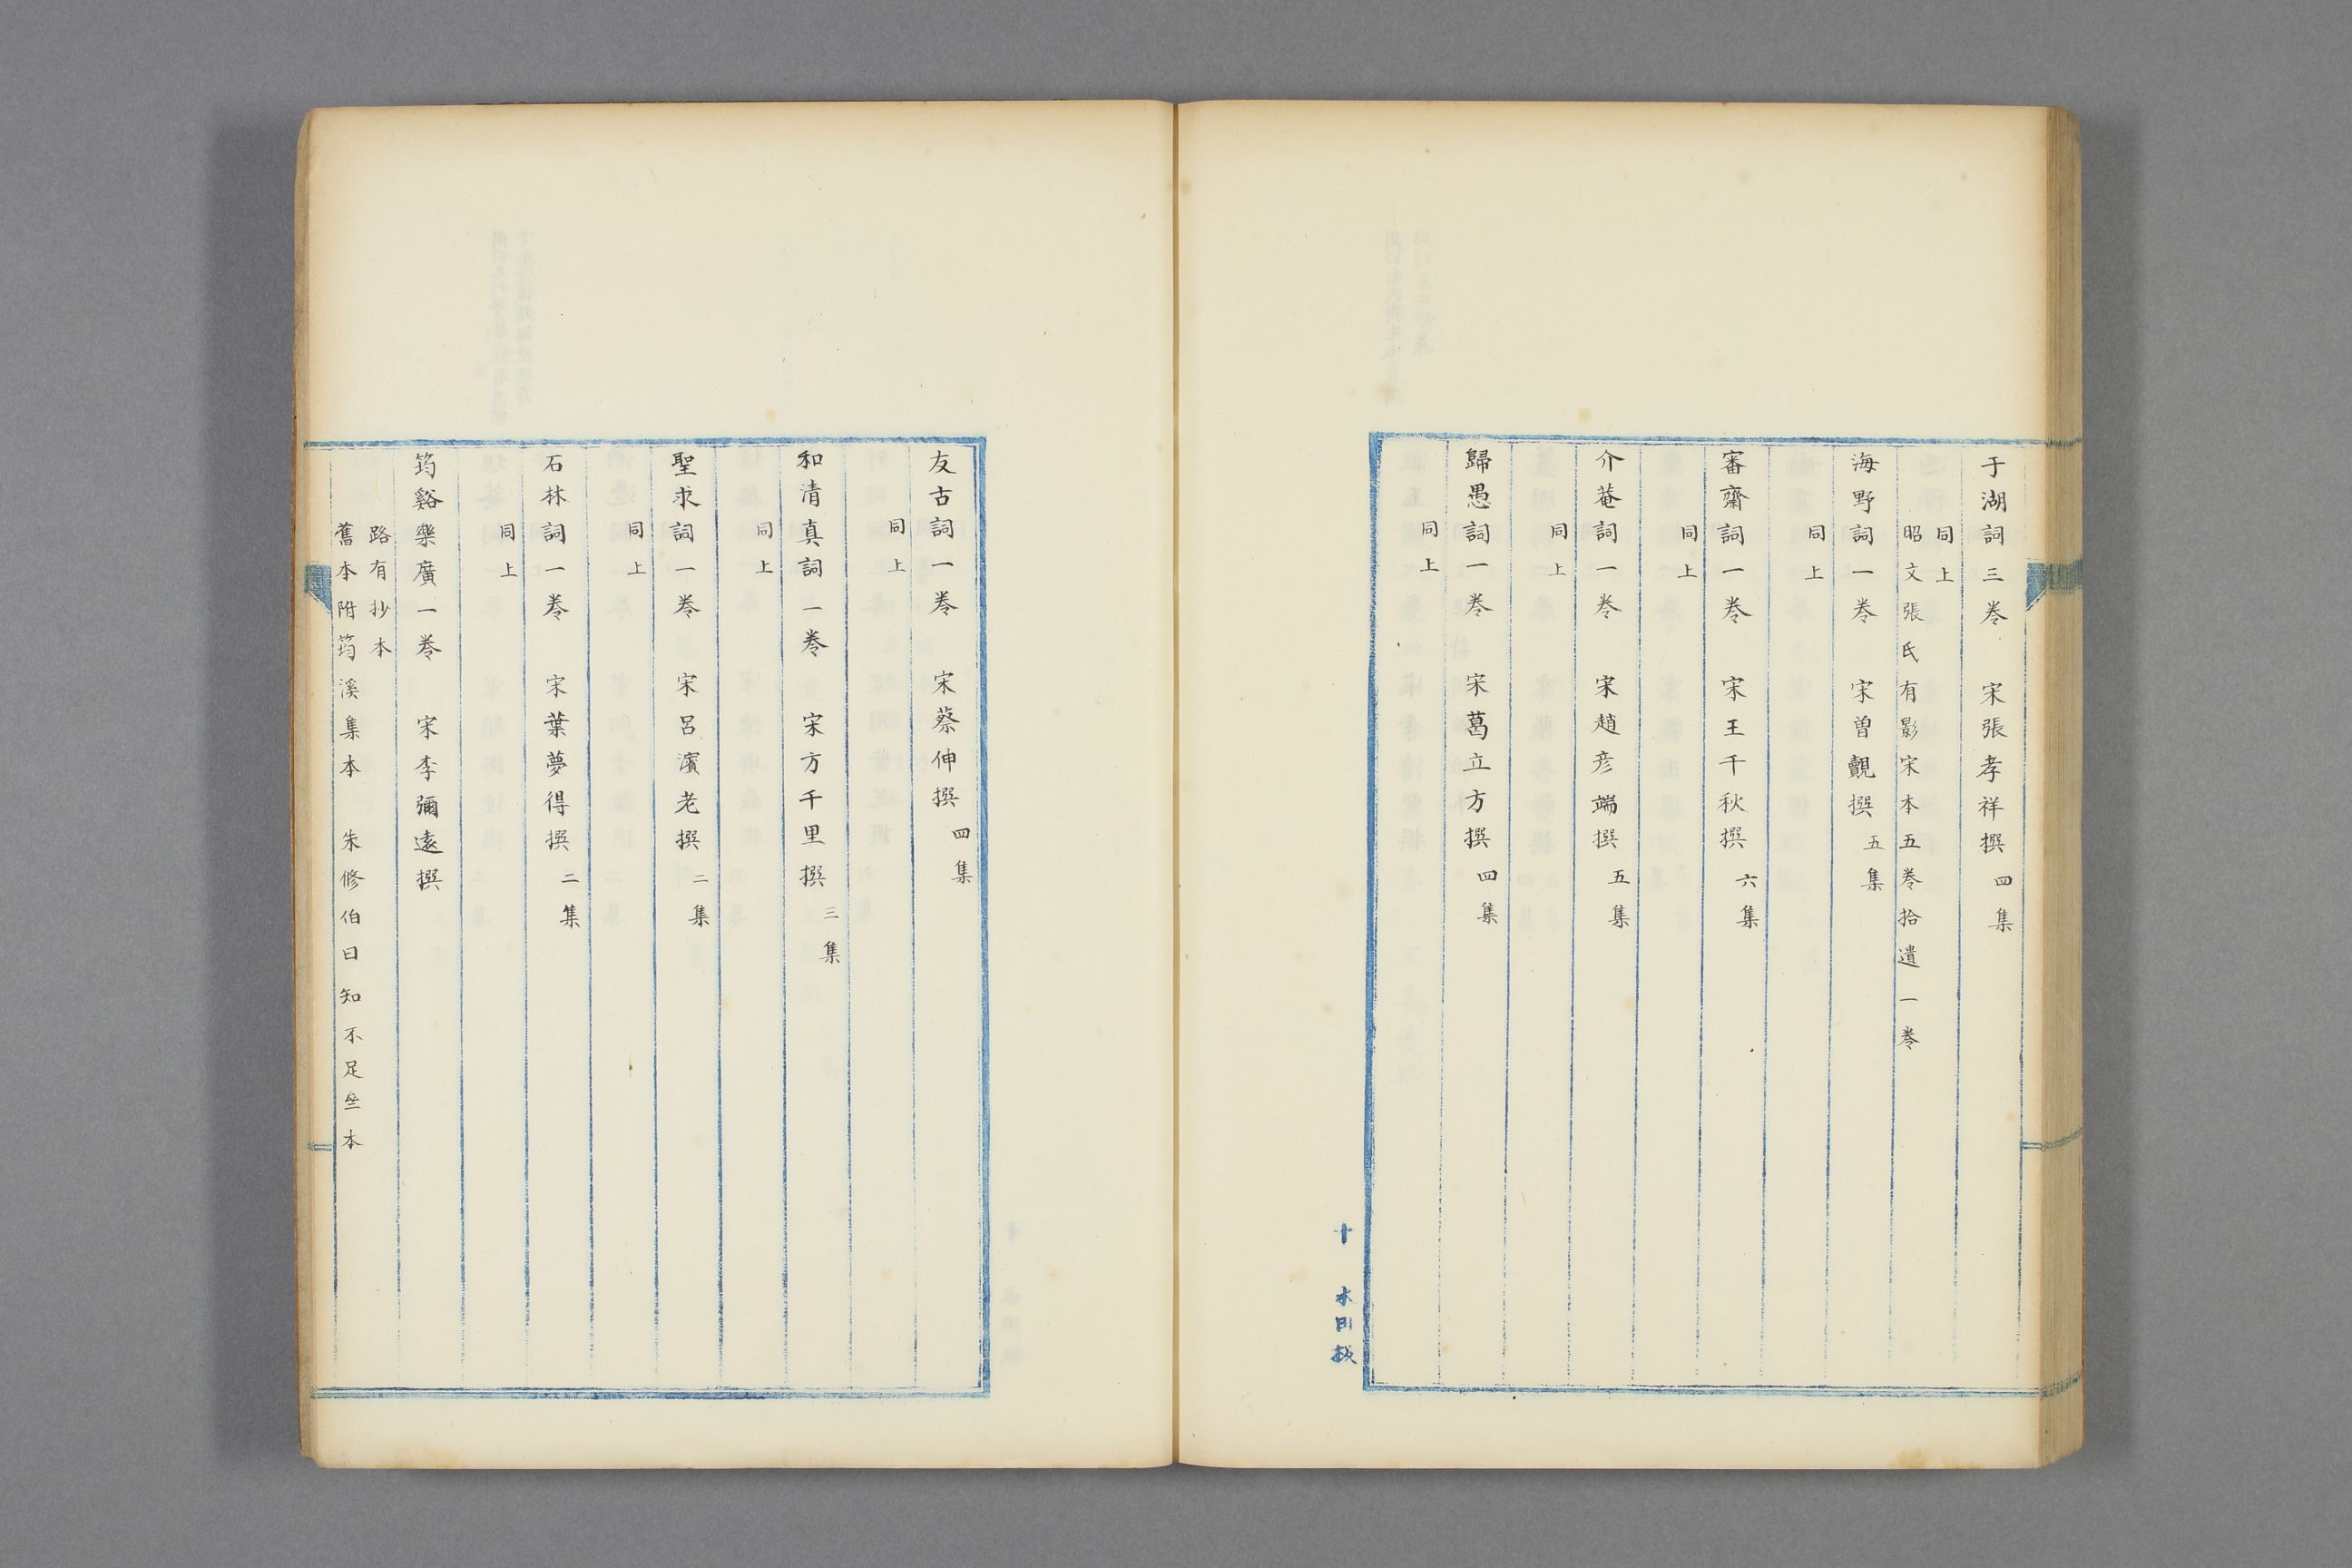 于湖詞三卷　宋張孝祥撰　四集
同上
昭文張氏有影宋本五卷拾遺一卷
海野詞一卷　宋曾覿撰　五集
同上
審齋詞一卷　宋王千秋撰　六集
同上
介菴詞一卷　宋趙彥端撰　五集
同上
歸愚詞一卷　宋葛立方撰　四集
同上
十　木日板
友古詞一卷　宋蔡伸撰　四集
同上
和清真詞一卷　宋方千里撰　三集
同上
聖求詞一卷　宋呂濱老撰　二集
同上
石林詞一卷　宋葉夢得撰　二集
同上
筠谿樂廣一卷　宋李彌遠撰
路有抄本
舊本附筠溪集本　朱修伯曰知不足叁本